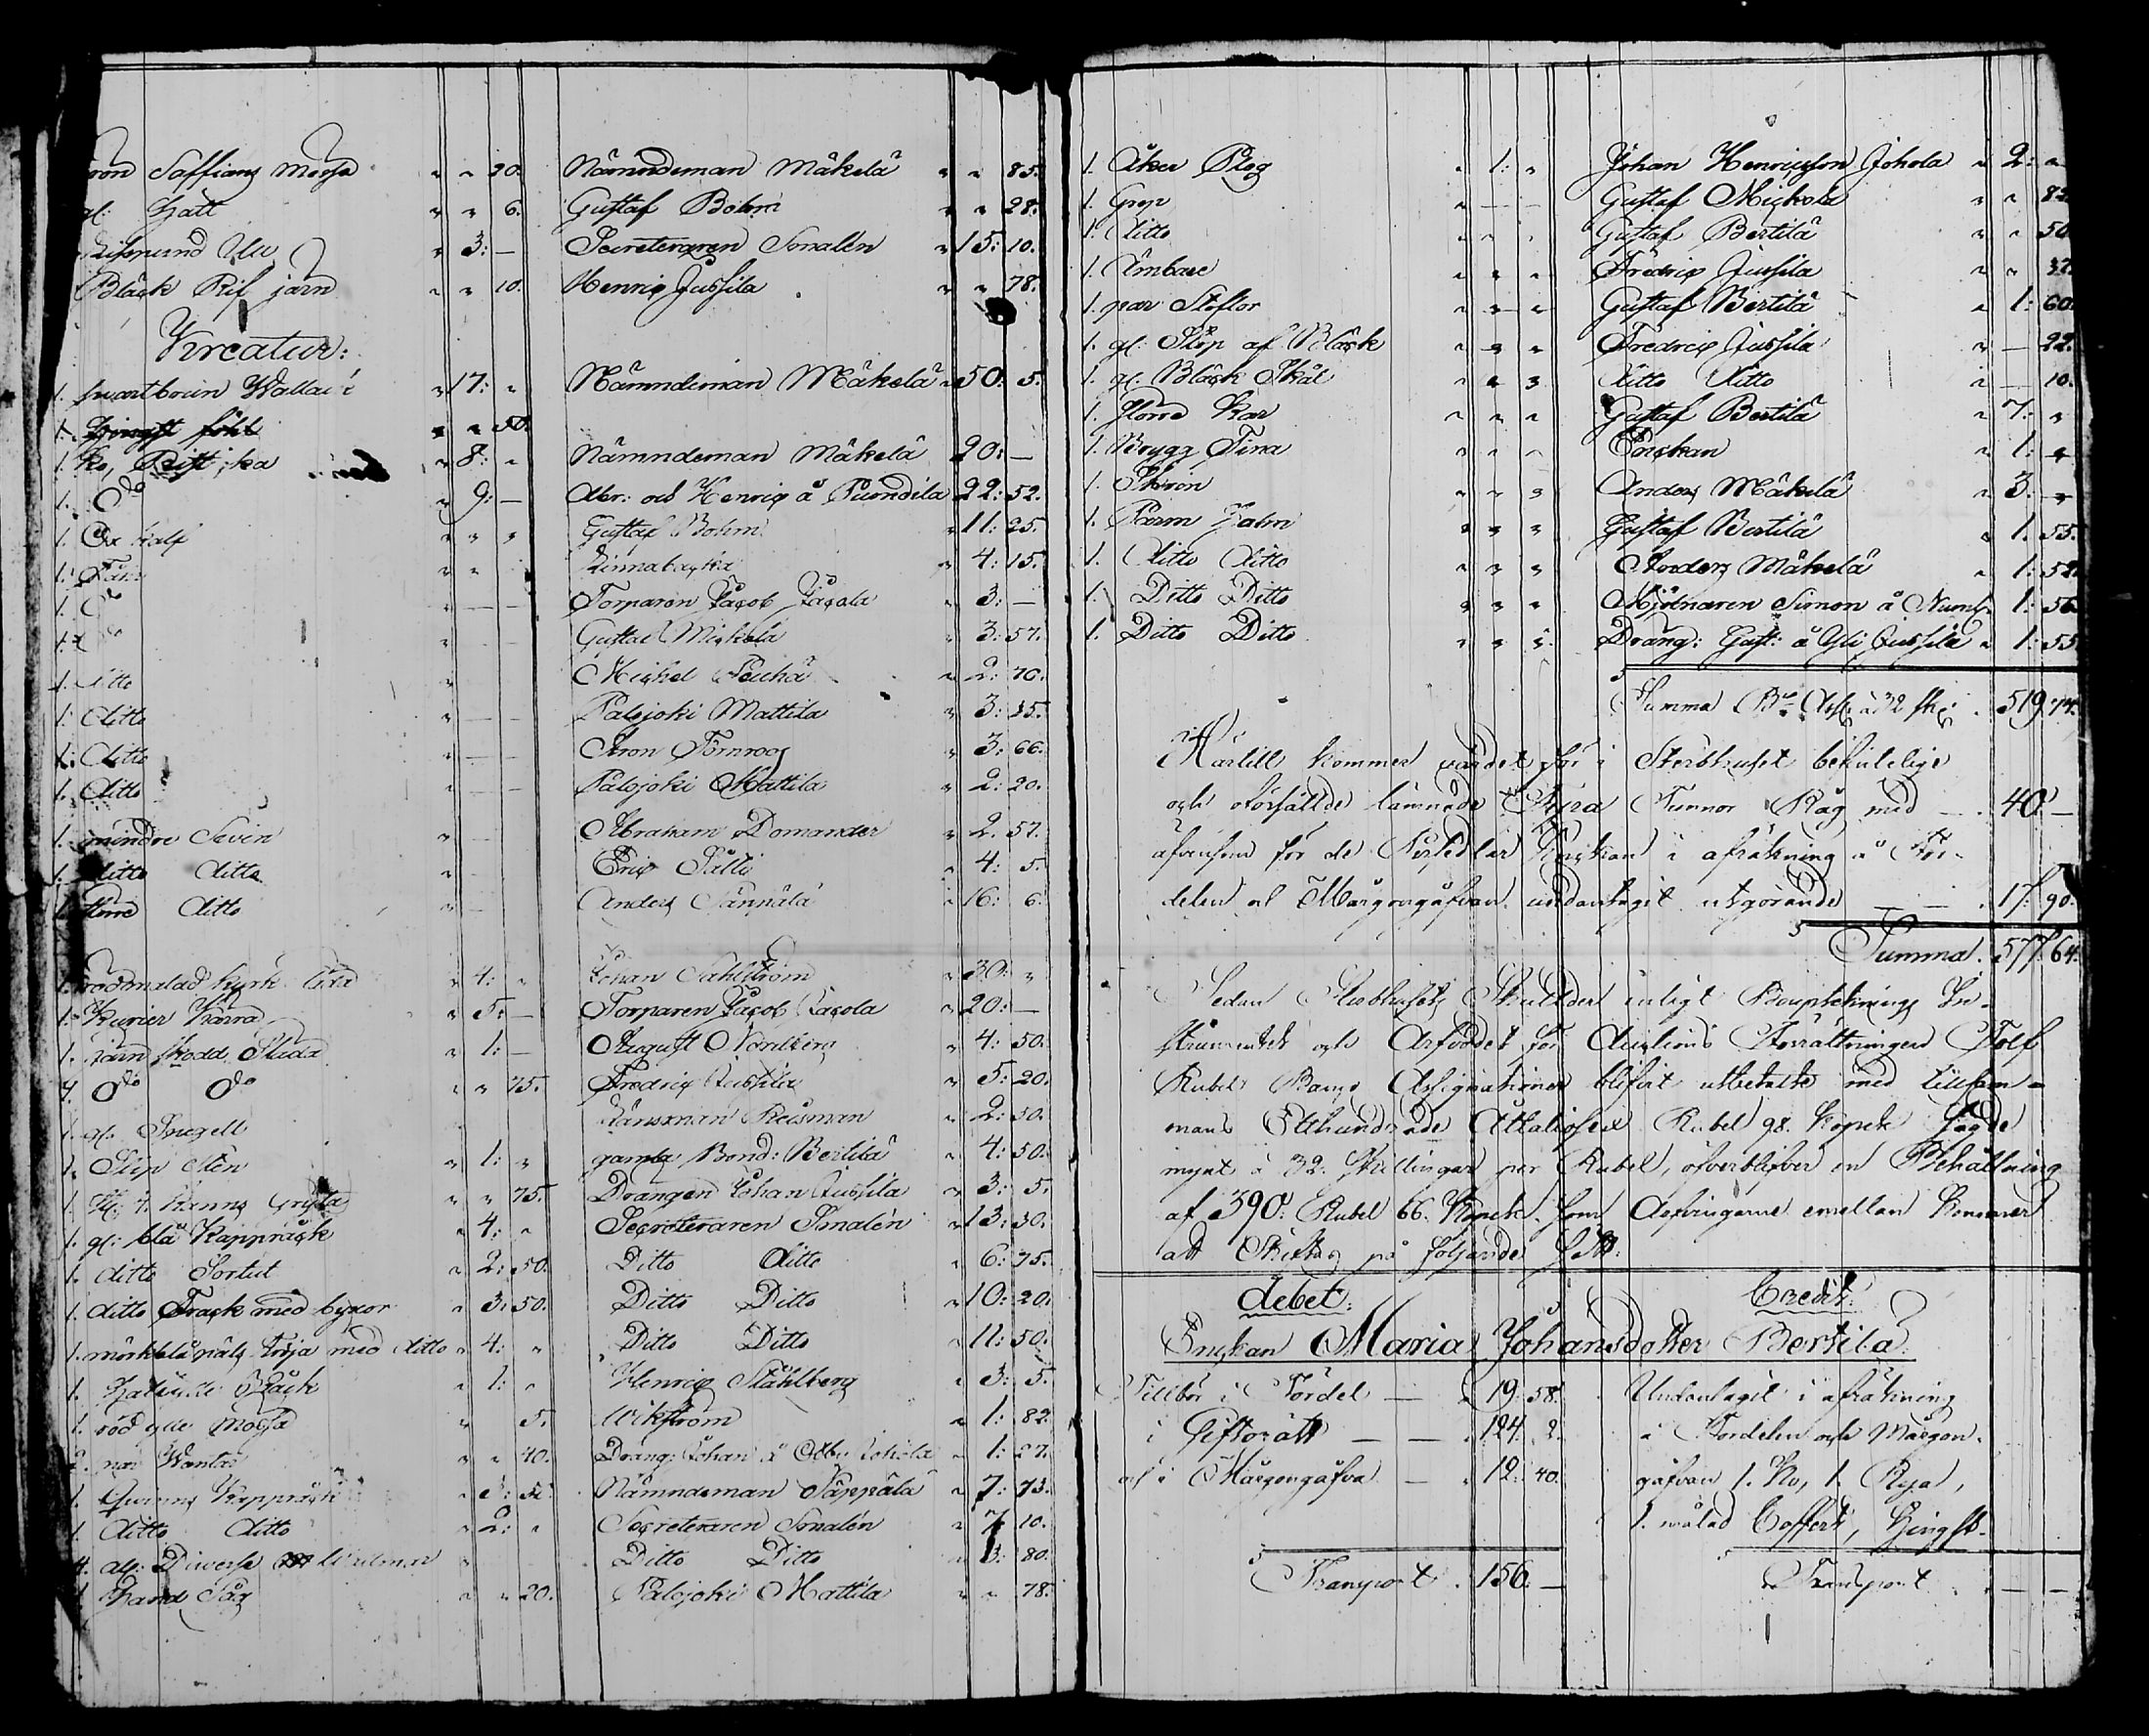 Saffians Mössa " " 20. Nämndeman Mäkelä " " 85.
gl. Hatt " " 6. Gustaf Bohm " " 28.
Lispund Ull " 3: — Secreteraren Smalén " 15: 10.
Bläck Rif järn " " 10. Henric Jussila " " 78.
Kreatur:
1. svartbrun Wallack " 17: " Nämndeman Mäkelä " 50: 5.
1. Hingst föhl " " 50.
1. Ko, " 8: " Nämndeman Mäkelä 20: —
1. Do " 9: — Abr: och Henric å Pundila 22: 52.
1. Ox kalf " " " Gustaf Bohm " 11: 25.
1. Får " " " 4: 15.
1. Do " — — Torparen Jacob Jacola " 3: —
1. do " Gustaf Mickola " 3: 57.
1. ditto " Michel " 2: 70.
1. Ditto " — — Palojoki Mattila " 3: 35.
1. Ditto " — — Törnroos " 3: 66.
1. Ditto " — — Palojoki Mattila " 2: 20.
1. mindre Svin " — Abraham Domander " 2. 57.
1. ditto ditto " Eric Sälli " 4: 5.
1. större ditto " — Anders " 16: 6.
1. rödmålad kyrk " 4: " Johan Sahlström " 30: "
1. Kurier Kärra " 5: — Torparen Jacob Jacola " 20: —
1. järn skodd Släda " 1: — August Nordberg " 4: 50.
1. Do Do " " 75. Fredric Jussila " 5: 20.
1. gl. Länsman " 2: 50.
1. Slip Sten " 1: " gamla Bond: Bertilä " 4: 50.
1. Kanns Gryta " " 75. Drängen Johan Jussila " 3: 5.
1. gl: blå Kapprock " 4: " Secreteraren Smalén " 13: 30.
1. ditto Sortut " 2: 50. Ditto ditto 6: 75.
1. ditto Frack med byxor " 3: 50. Ditto Ditto " 10: 20.
1. mörkblå päls Tröja med ditto " 4: " Ditto Ditto " 11: 50.
1. " 1: " Henric Ståhlberg " 3: 5.
1. röd ylle mössa " 5. Wikström " 1: 82.
2. par Wantar " " 40. Dräng: Johan å Johola " 1: 27.
1. Kapprock Nämndeman Säppälä " 7: 73.
1. Ditto Ditto " 2: " Secreteraren Smalén " 7. 10.
4. Diverse Ditto Ditto " 3: 80.
1 Hand Såg " " 20. Palojoki Mattila " " 78.
1. Åker Plog " 1: " Johan Henricsson Johola " 2: "
1. Grep " — — Gustaf Mickola " " 82
1. Ditto " " " Gustaf Bertilä " " 50
1. Ämbare " " " Fredric Jussila " " 37.
1. par Stöflor " " " Gustaf Bertilä " 1: 60.
1. gl: Stop af Bläck " " " Fredric Jussila " — 22.
1. gl. Bläck Skål " " " Ditto Ditto " — 10.
1. större Kar " " " Gustaf Bertilä " 7: "
1. Brygg Tina " " " Enckan " 1: "
1. Skrin " " " Anders Mäkelä " 3: "
1. " " " Gustaf Bertilä " 1. 55.
1. Ditto Ditto " " " Anders Mäkelä " 1: 52
1. Ditto Ditto " " " Mjölnaren Simon å 1: 56
1. Ditto Ditto " " " Dräng: Gust: å Yli Jussila " 1: 55
Summa à 32 sk: 519: 74.
Hvartill kommer värdet för i Sterbhuset befintelige
och oförsåldte lämnade Fyra Tunnor Råg med — 40. —
äfvensom för de Enckan i afräkning å För-
delen och Morgongåfvan undantagit utgörande — — 17: 90.
Summa. 577: 64.
Sedan Sterbhusets Skulder enligt Bouptecknings In-
strumentet och Arfvodet för Auctions Förrättningen Tolf
Rubel Banco Assignationer blifvit utbetalte med tillsam-
mans Etthundrade Åttatiosex Rubel 98. Kopek sagde
mynt à 32. Skillingar per Rubel, öfverblifver en Behållning
af 390. Rubel 66. Kopek. som Arfvingarne emellan kommer
att Skiftas på följande sätt:
debet: Credit:
Enckan Maria Johansdotter Bertila.
Tillbör i Fördel — " 19: 58. Undantagit i afräkning
i Giftorätt — — 124. 2. å Fördelen och Morgon-
och i Morgongåfva — " 12: 40. gåfvan 1. Ko, 1. Rya,
1. målad Coffert, Hingst-
Transport . 156. — Transport . — —